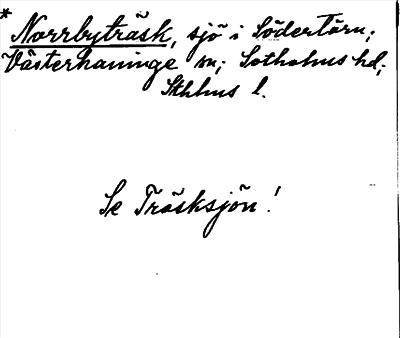 * Norrbyträsk, sjö i Södertörn;
Västerhaninge sn; Sotholms hd,
Sthlms l.
Se Träsksjön!